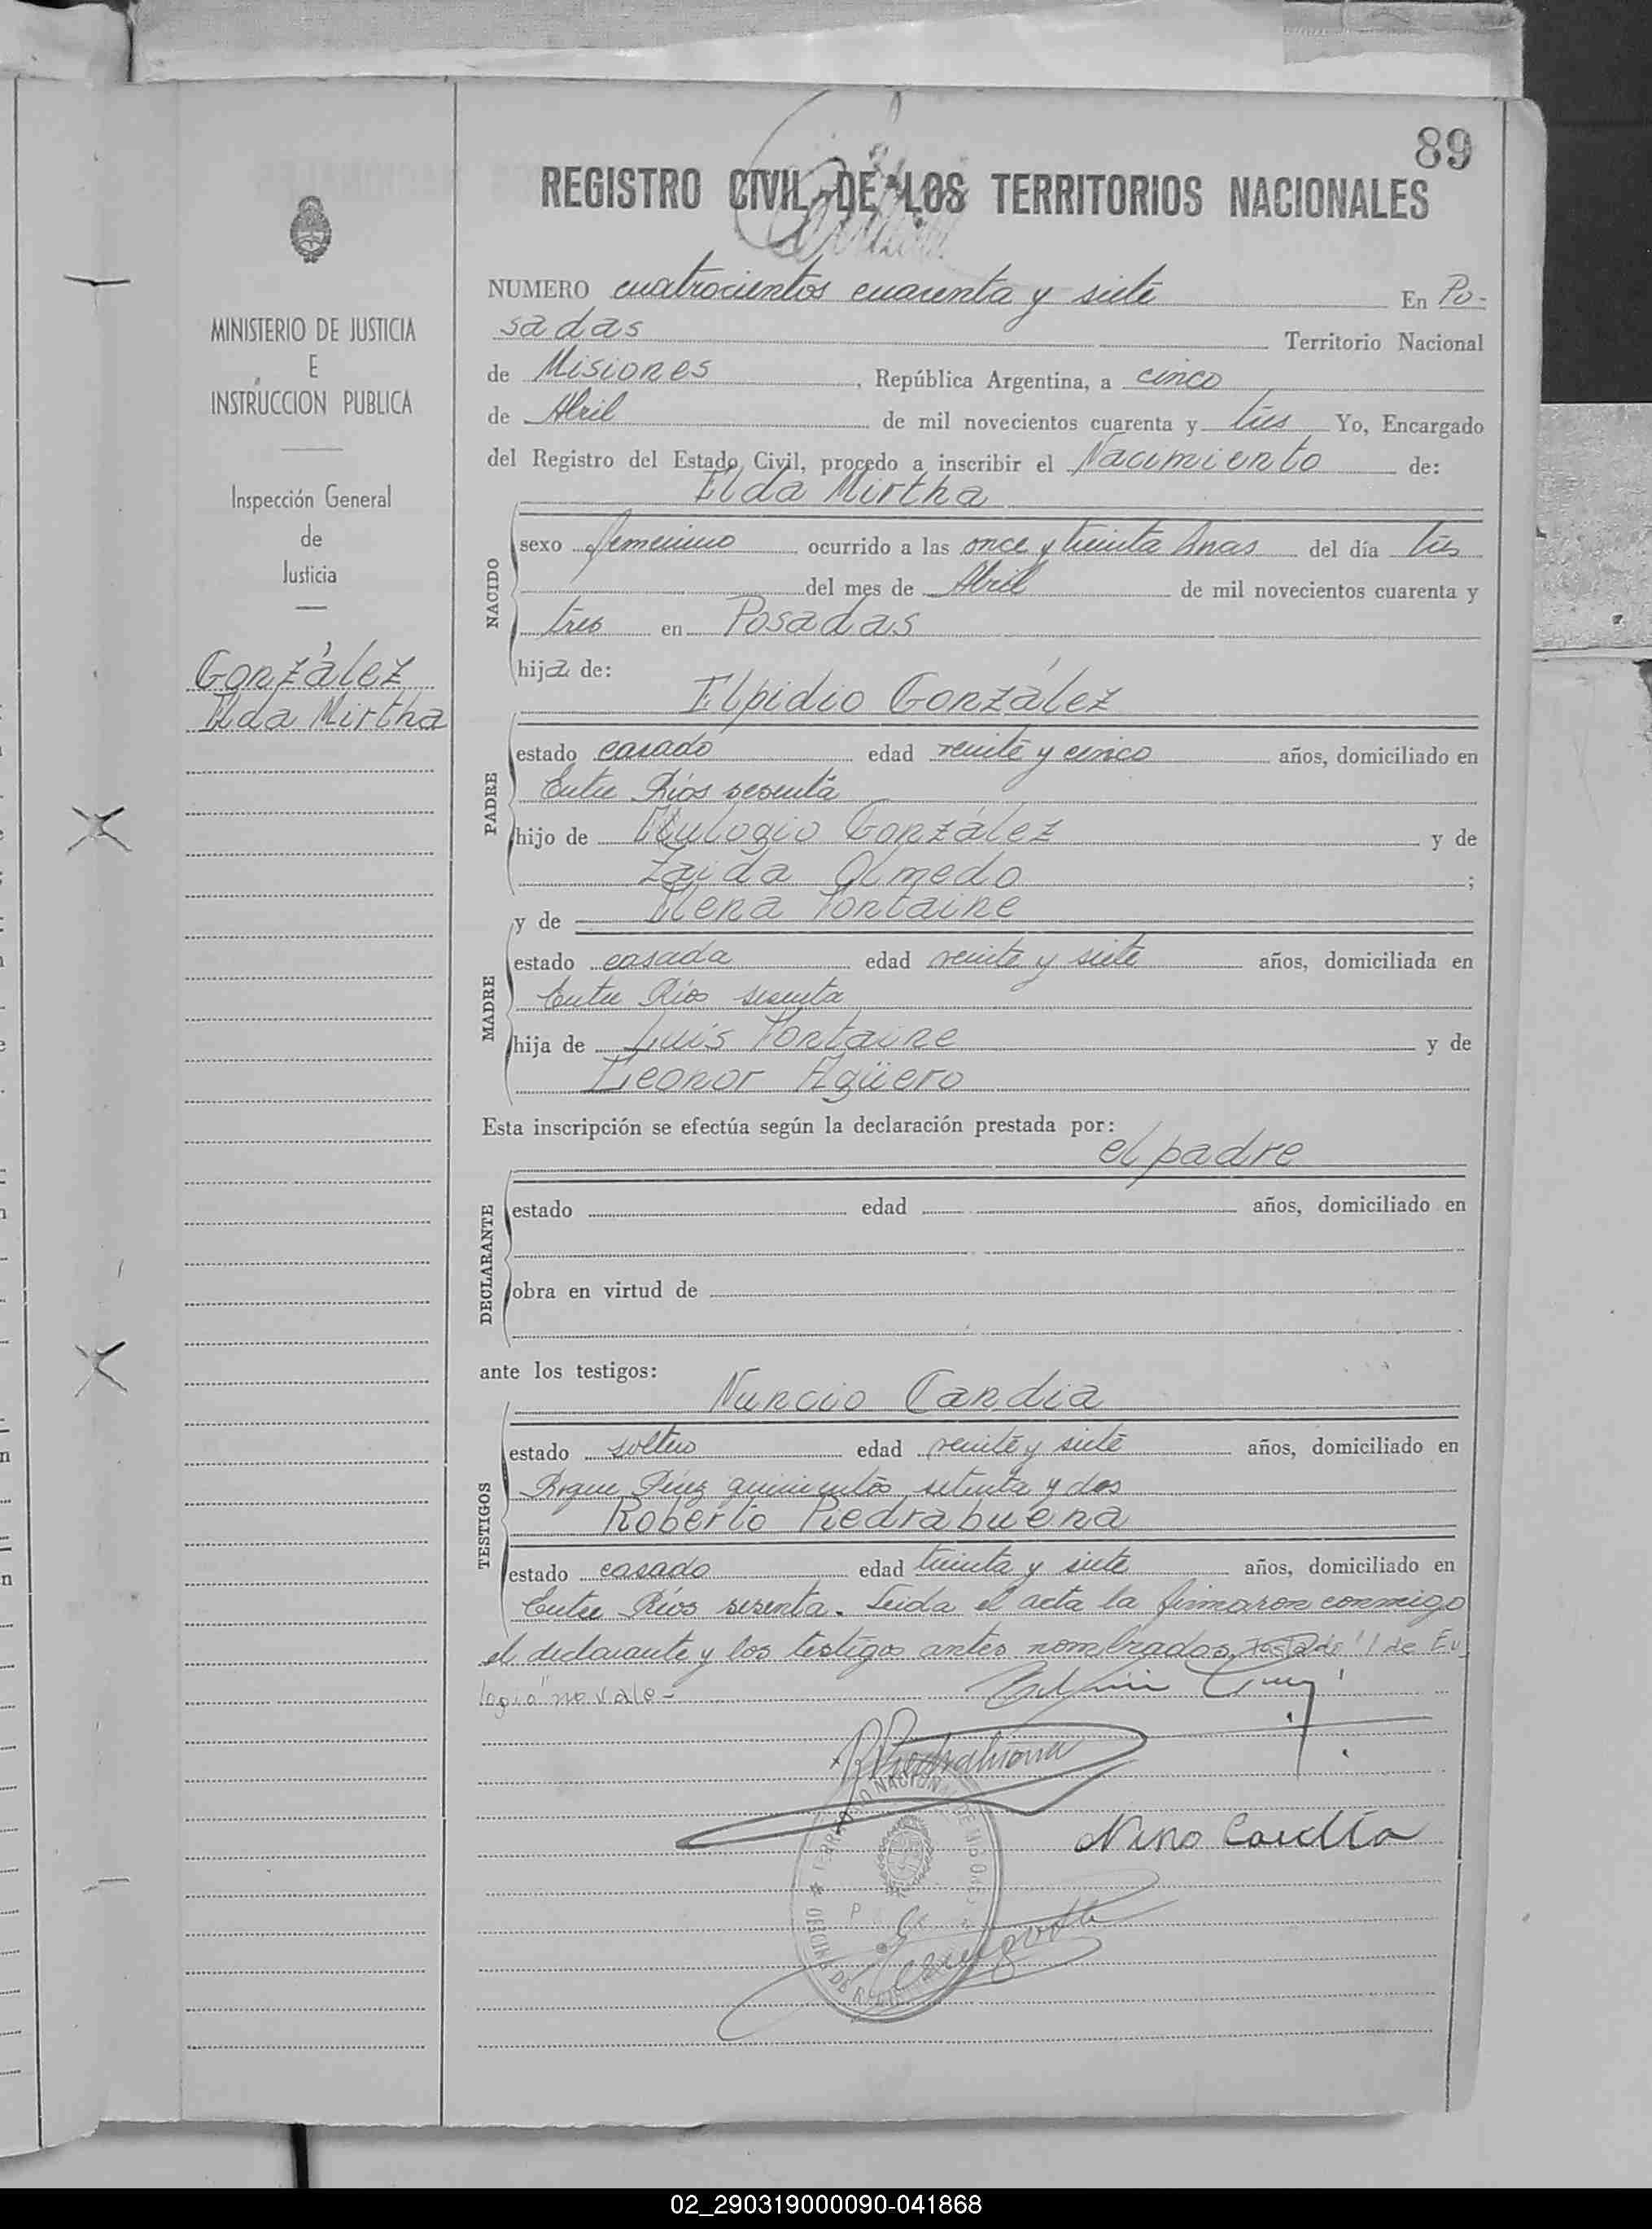 89
REGISTRO CIVIL DE LOS TERRITORIOS NACIONALES
NUMERO cuatrocientos cuarenta y siete En Po-
sadas Territorio Nacional
de Misiones, República Argentina, a cinco
de Abril de mil novecientos cuarenta y tres Yo, Encargado
del Registro del Estado Civil, procedo a inscribir el Nacimiento de:
Elda Mirtha
NACIDO
sexo femenino ocurrido a las once y treinta horas del día tres
del mes de Abril de mil novecientos cuarenta y
tres en Posadas
hija de:
Elpidio González
PADRE
estado casado edad veinte y cinco años, domiciliado en
Entre Ríos sesenta
hijo de Eulogio González y de
Zaida Olmedo;
y de Elena Fontaine
MADRE
estado casada edad veinte y siete años, domiciliada en
Entre Ríos sesenta
hija de Luis Fontaine y de
Leonor Agüero
Esta inscripción se efectúa según la declaración prestada por:
el padre
DECLARANTE
estado edad años, domiciliado en
obra en virtud de
ante los testigos:
Nuncio Candia
TESTIGOS
estado soltero edad veinte y siete años, domiciliado en
Roque Pérez quinientos setenta y dos
Roberto Piedrabuena
estado casado edad treinta y siete años, domiciliado en
Entre Ríos sesenta. Leida el acta la firmaron conmigo
el declarante y los testigos antes nombrados. Testado "l de Eu
logio" no vale-
MINISTERIO DE JUSTICIA
E
INSTRUCCION PUBLICA
Inspección General
de
Justicia
González
Elda Mirtha
02_290319000090-041868